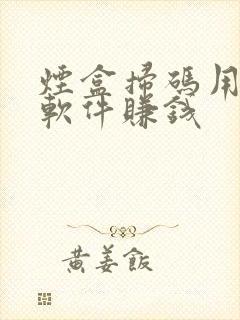 煙盒掃碼用
軟件賺錢
黃姜飯